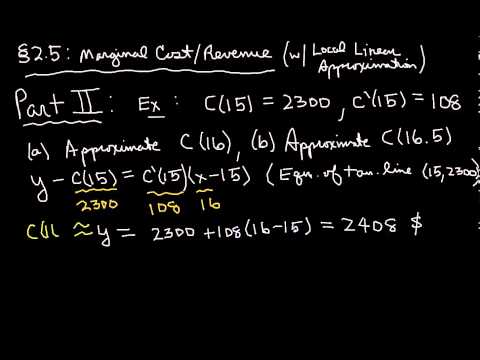 §2.5: Marginal Cost/Revenue (w/ Local Linear Approximation)
Part II: Ex: C(15) = 2300, C'(15) = 108
(a) Approximate C(16), (b) Approximate C(16.5)
y - C(15) = C'(15)(x-15) (Eqn. of tan. line (15,2300)
2300 108 16
C(1 ≈ y = 2300 + 108(16-15) = 2408 $